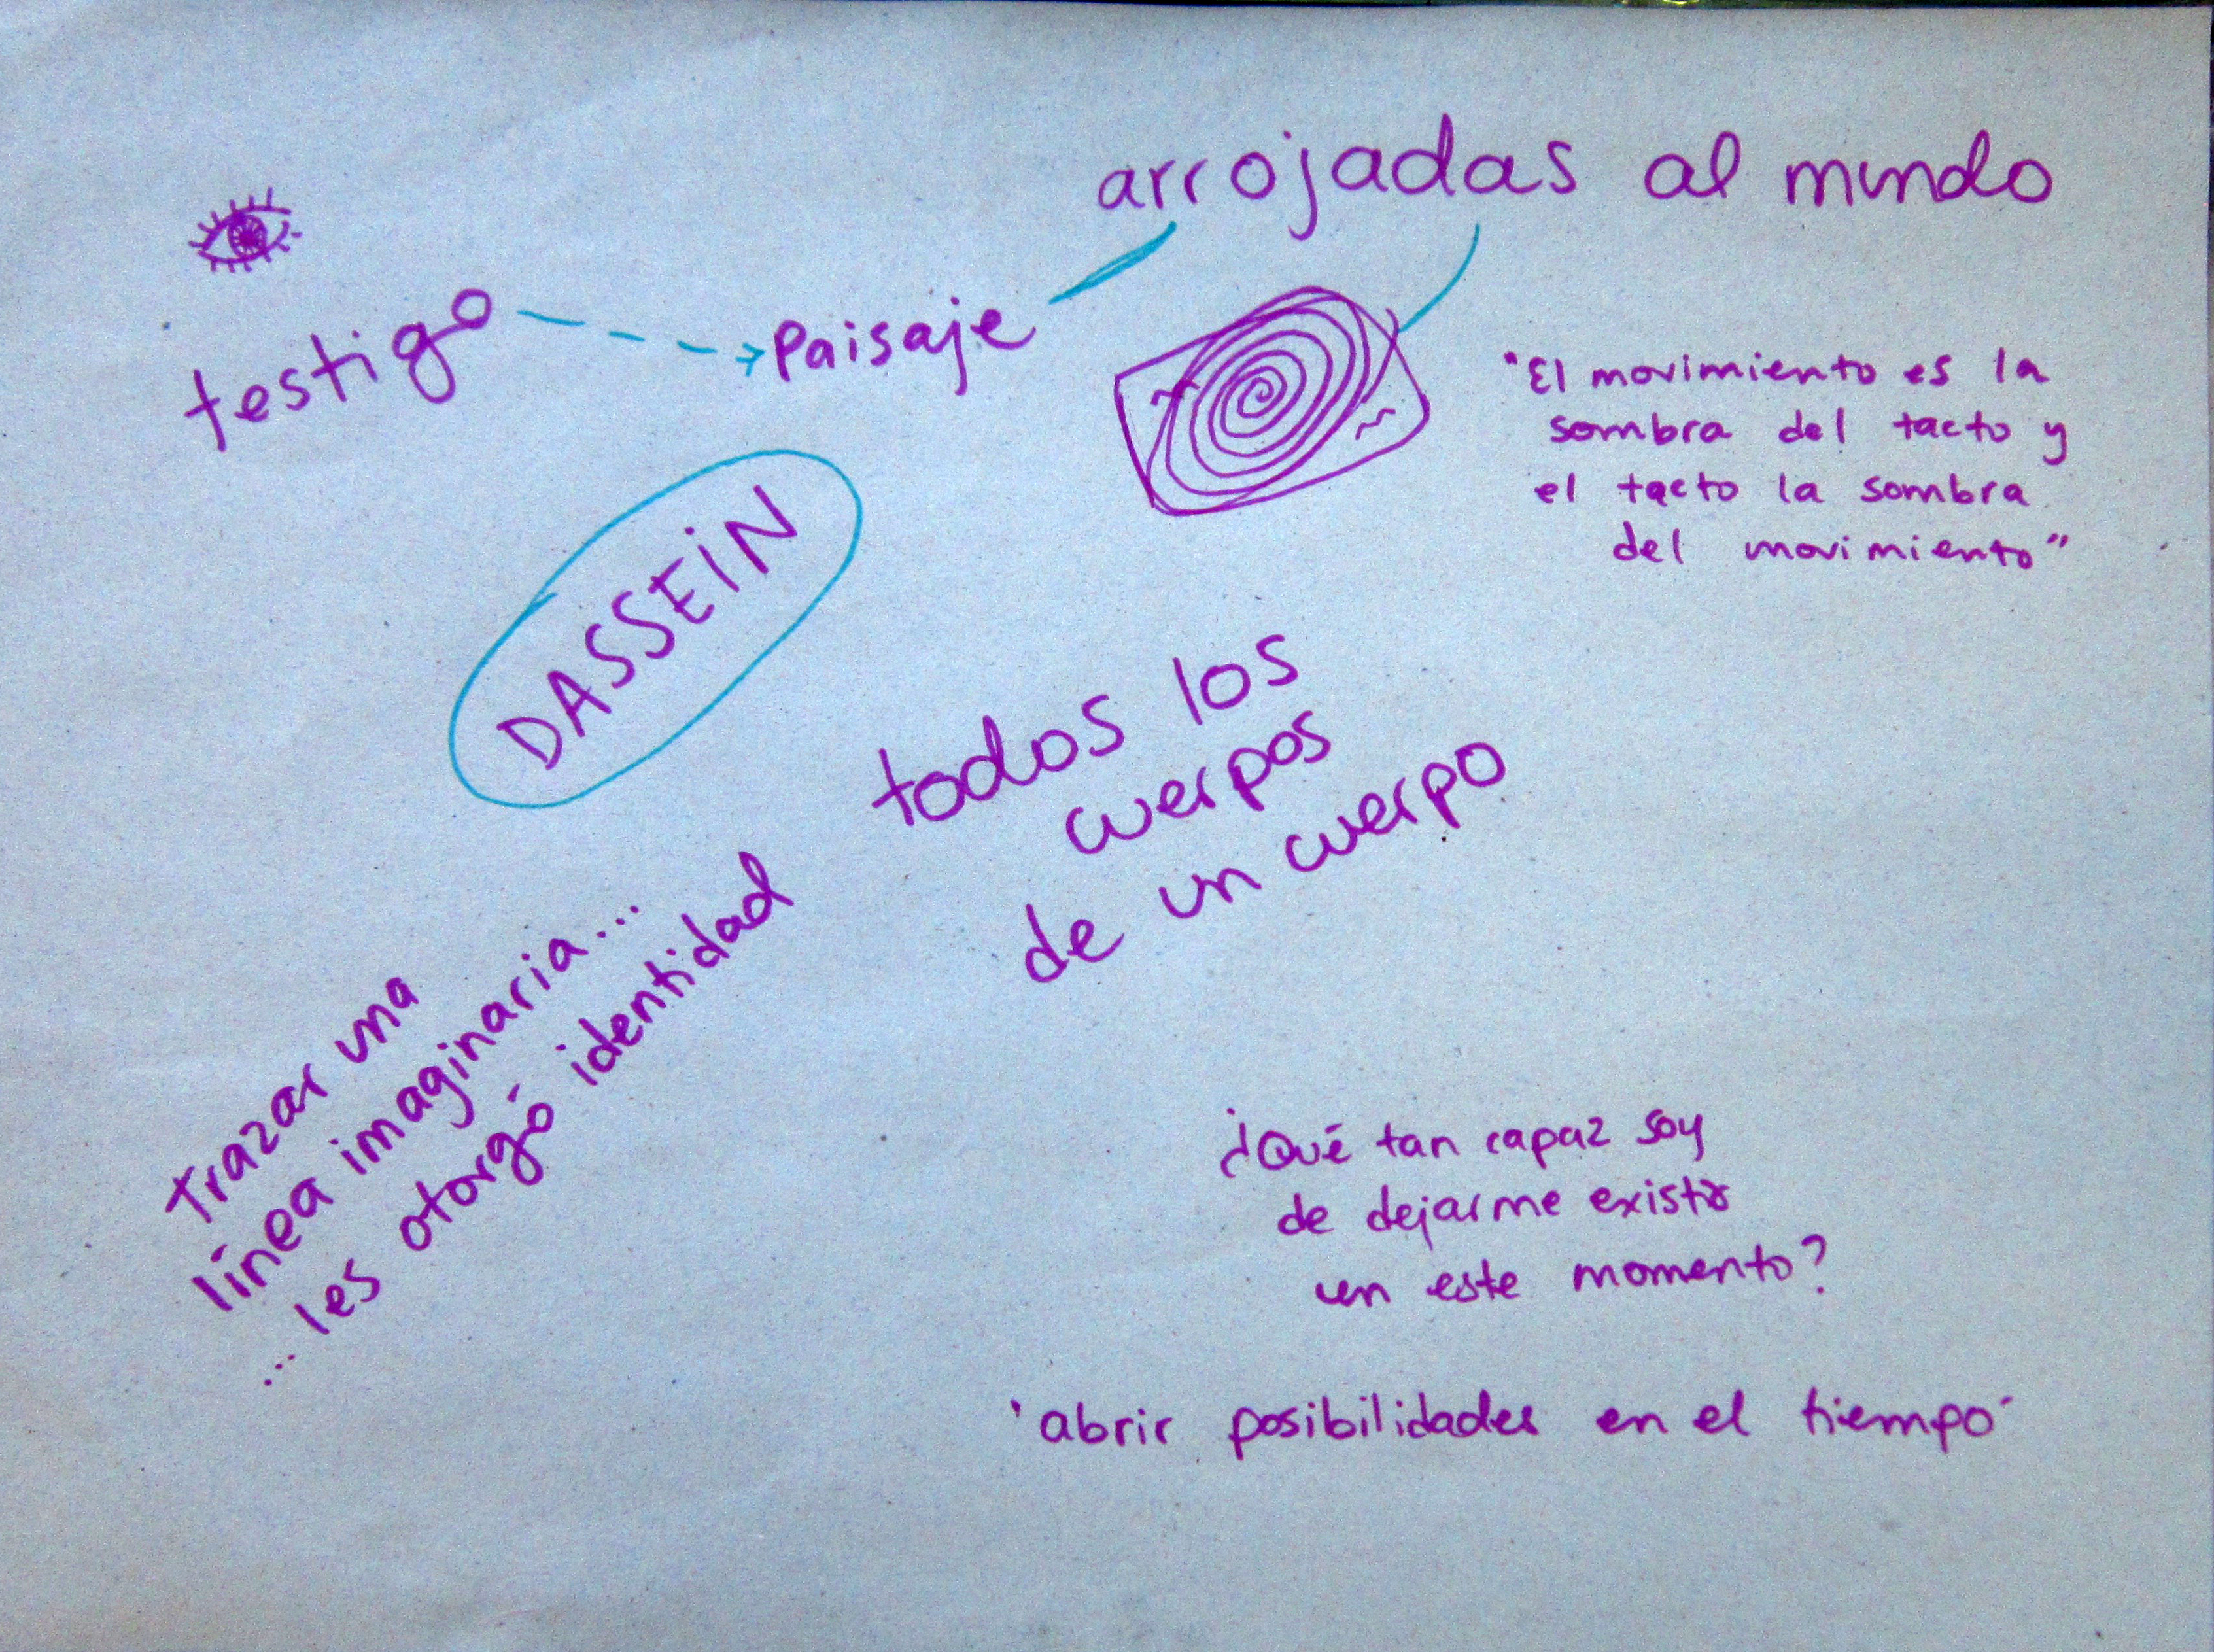 arrojadas al mundo
testigo
Paisaje
"El movimiento es la
sombra del tacto y
el tacto la sombra
del movimiento"
DASSEiN
todos los
cuerpos
de un cuerpo
Trazar una
línea imaginaria...
...les otorgó identidad
¿Qué tan capaz soy
de dejarme existir
en este momento?
'abrir posibilidades en el tiempo'